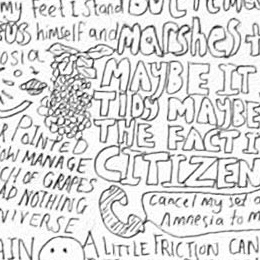 my feet I stand
himself and marshes
osia
MAYBE IT
TIDY MAYBE
THE FACT I
CITIZEN
POINTED
OW MANAGE
CH OF GRAPES
AD NOTHING
NIVERSE
Cancel my set
Amnesia to m
AIN
A LITTLE FRICTION CAN